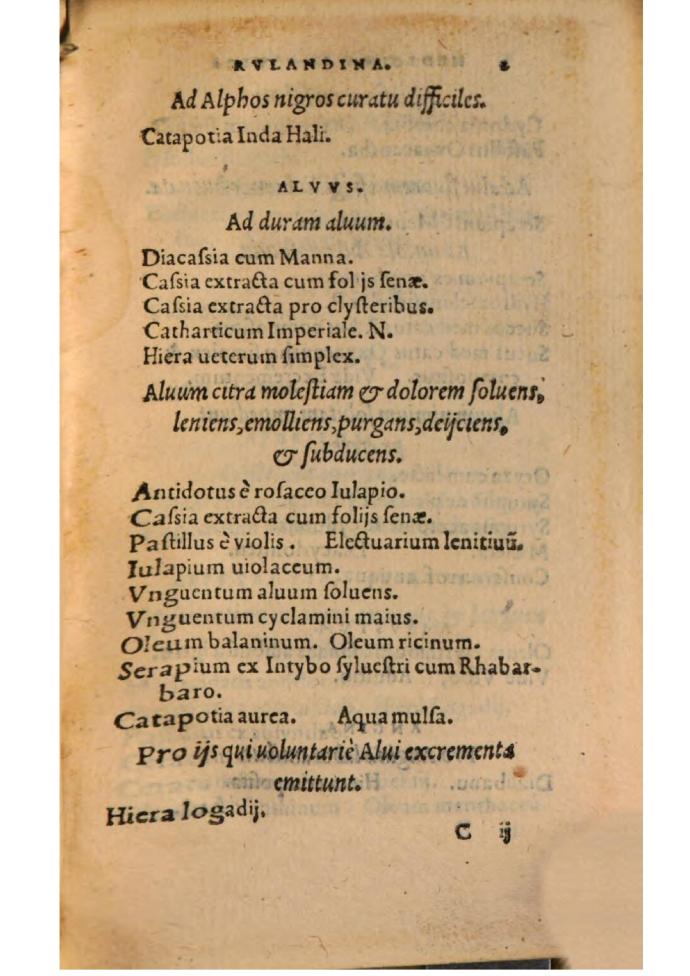 RVLANDINA.
Ad Alphos nigros curatu difficiles.
Catapotia Inda Hali.
ALVVS.
Ad duram aluum.
Diacaſsia cum Manna.
Caſsia extracta cum folijs ſenæ.
Caſsia extracta pro clyſteribus.
Catharticum Imperiale. N.
Hiera ueterum ſimplex.
Aluum citra moleſtiam & dolorem ſoluens,
leniens, emolliens, purgans, deijciens,
& ſubducens.
Antidotus è roſaceo Iulapio.
Caſsia extracta cum folijs ſenæ.
Paſtillus è violis. Electuarium lenitiuũ.
Iulapium uiolaceum.
Vnguentum aluum ſoluens.
Vnguentum cyclamini maius.
Oleum balaninum. Oleum ricinum.
Serapium ex Intybo ſylueſtri cum Rhabar-
baro.
Catapotia aurea. Aqua mulſa.
Pro ijs qui uoluntariè Alui excrementa
emittunt.
Hiera logadij.
C ij